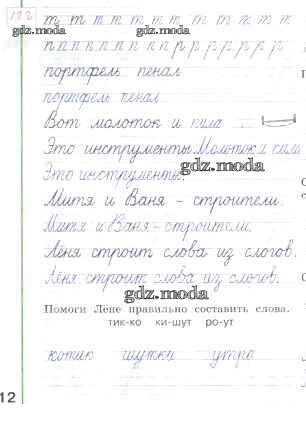 122
т т т т т т т т т т т т т
gdz.moda gdz.moda
п п п п п п п п п р р р р р р р р
портфель пенал
портфель пенал
gdz.moda
Вот молоток и пила .
Это инструменты. Молоток и пила
gdz.moda
Это инструменты.
Митя и Ваня - строители.
Митя и Ваня - строители.
gdz.moda
Лёня строит слова из слогов.
Лёня строит слова из слогов.
gdz.moda
Помоги Лёне правильно составить слова.
тик-ко ки-шут ро-ут
котик шутки утро
12